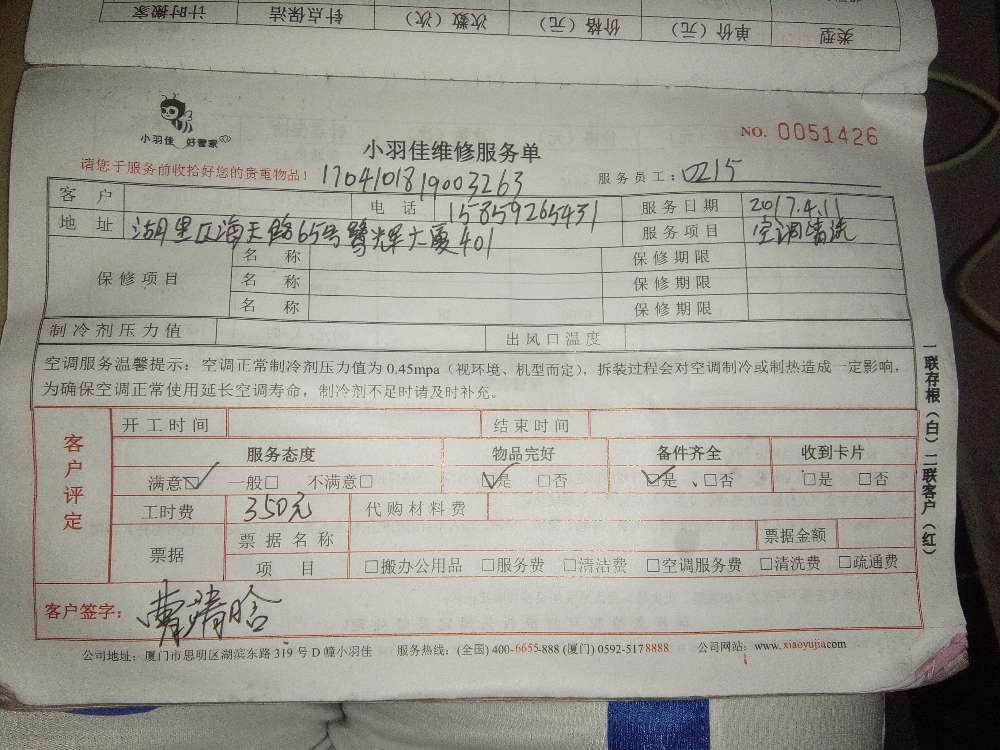 类型 单价（元） 价格（元） 次数（次） 针点保洁 计时搬家
小羽佳 好管家
小羽佳维修服务单
NO. 0051426
请您于服务前收拾好您的贵重物品！ 1704101819003263 服务员工：0215
客 户 电 话 15859265431 服务日期 2017.4.11
地 址 湖里区海天路65号鹭辉大厦401 服务项目 空调清洗
保修项目 名 称 保修期限
名 称 保修期限
名 称 保修期限
制冷剂压力值 出风口温度
空调服务温馨提示：空调正常制冷剂压力值为 0.45mpa（视环境、机型而定），拆装过程会对空调制冷或制热造成一定影响，
为确保空调正常使用延长空调寿命，制冷剂不足时请及时补充。
客户评定
开工时间 结束时间
服务态度 物品完好 备件齐全 收到卡片
满意☑ 一般□ 不满意□ ☑是 □否 ☑是、□否 □是 □否
工时费 350元 代购材料费
票据 票据名称 票据金额
项 目 □搬办公用品 □服务费 □清洁费 □空调服务费 □清洗费 □疏通费
客户签字：
公司地址：厦门市思明区湖滨东路 319 号 D 幢小羽佳 服务热线：(全国) 400-6655-888 (厦门) 0592-5178888 公司网站：www.xiaoyujia.com
一联存根（白）二联客户（红）